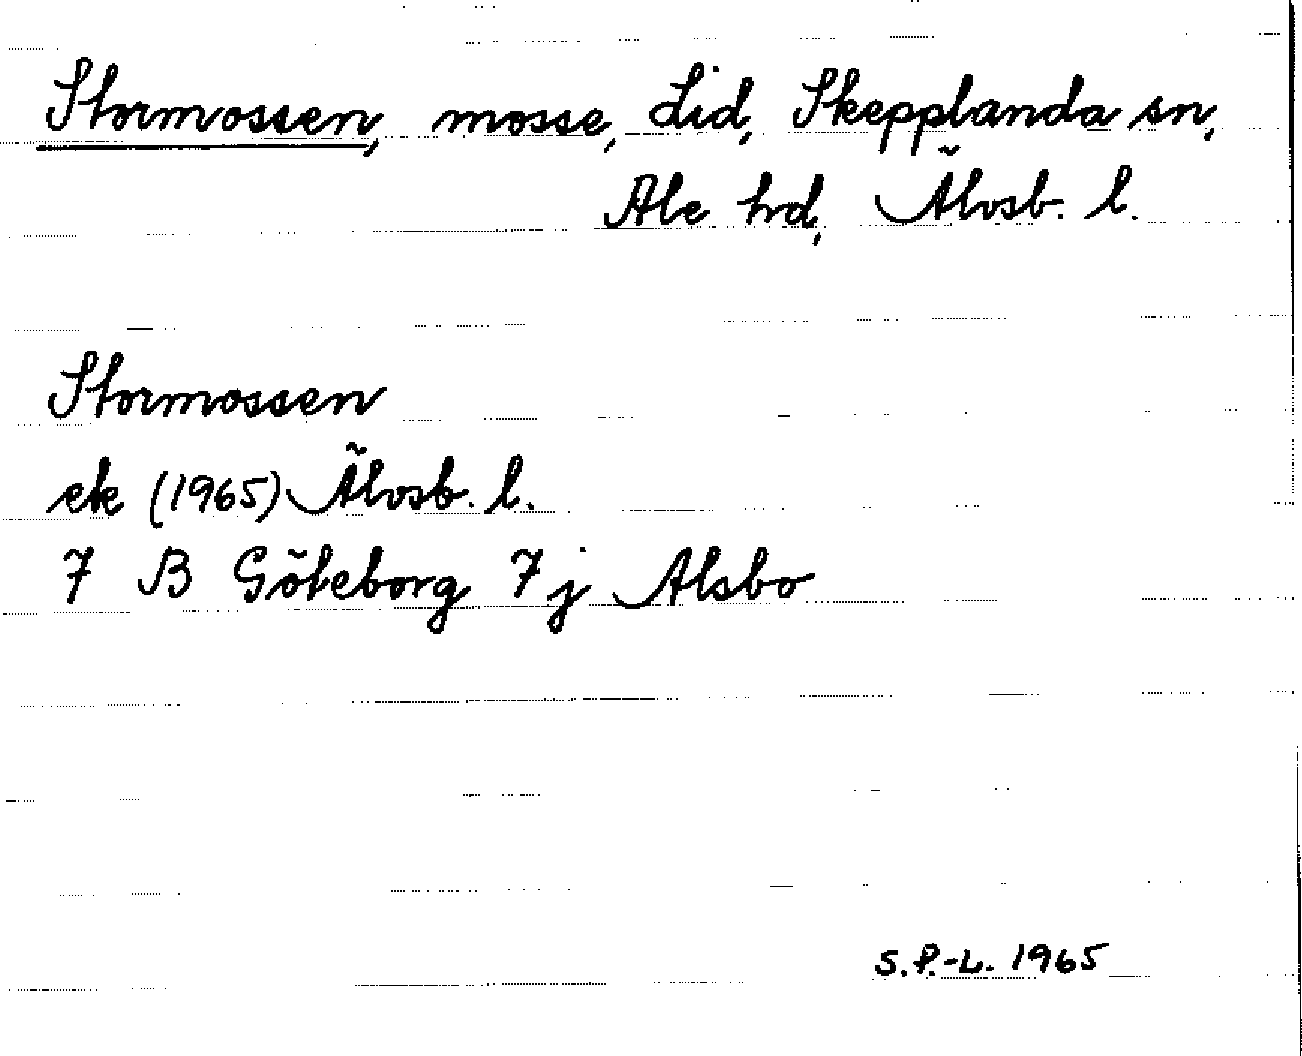 Stormossen, mosse, Lid, Skepplanda sn,
Ale hd, Älvsb. l.
Stormossen
ek (1965) Älvsb. l.
7 B Göteborg 7 j Alsbo
S.P.-L. 1965